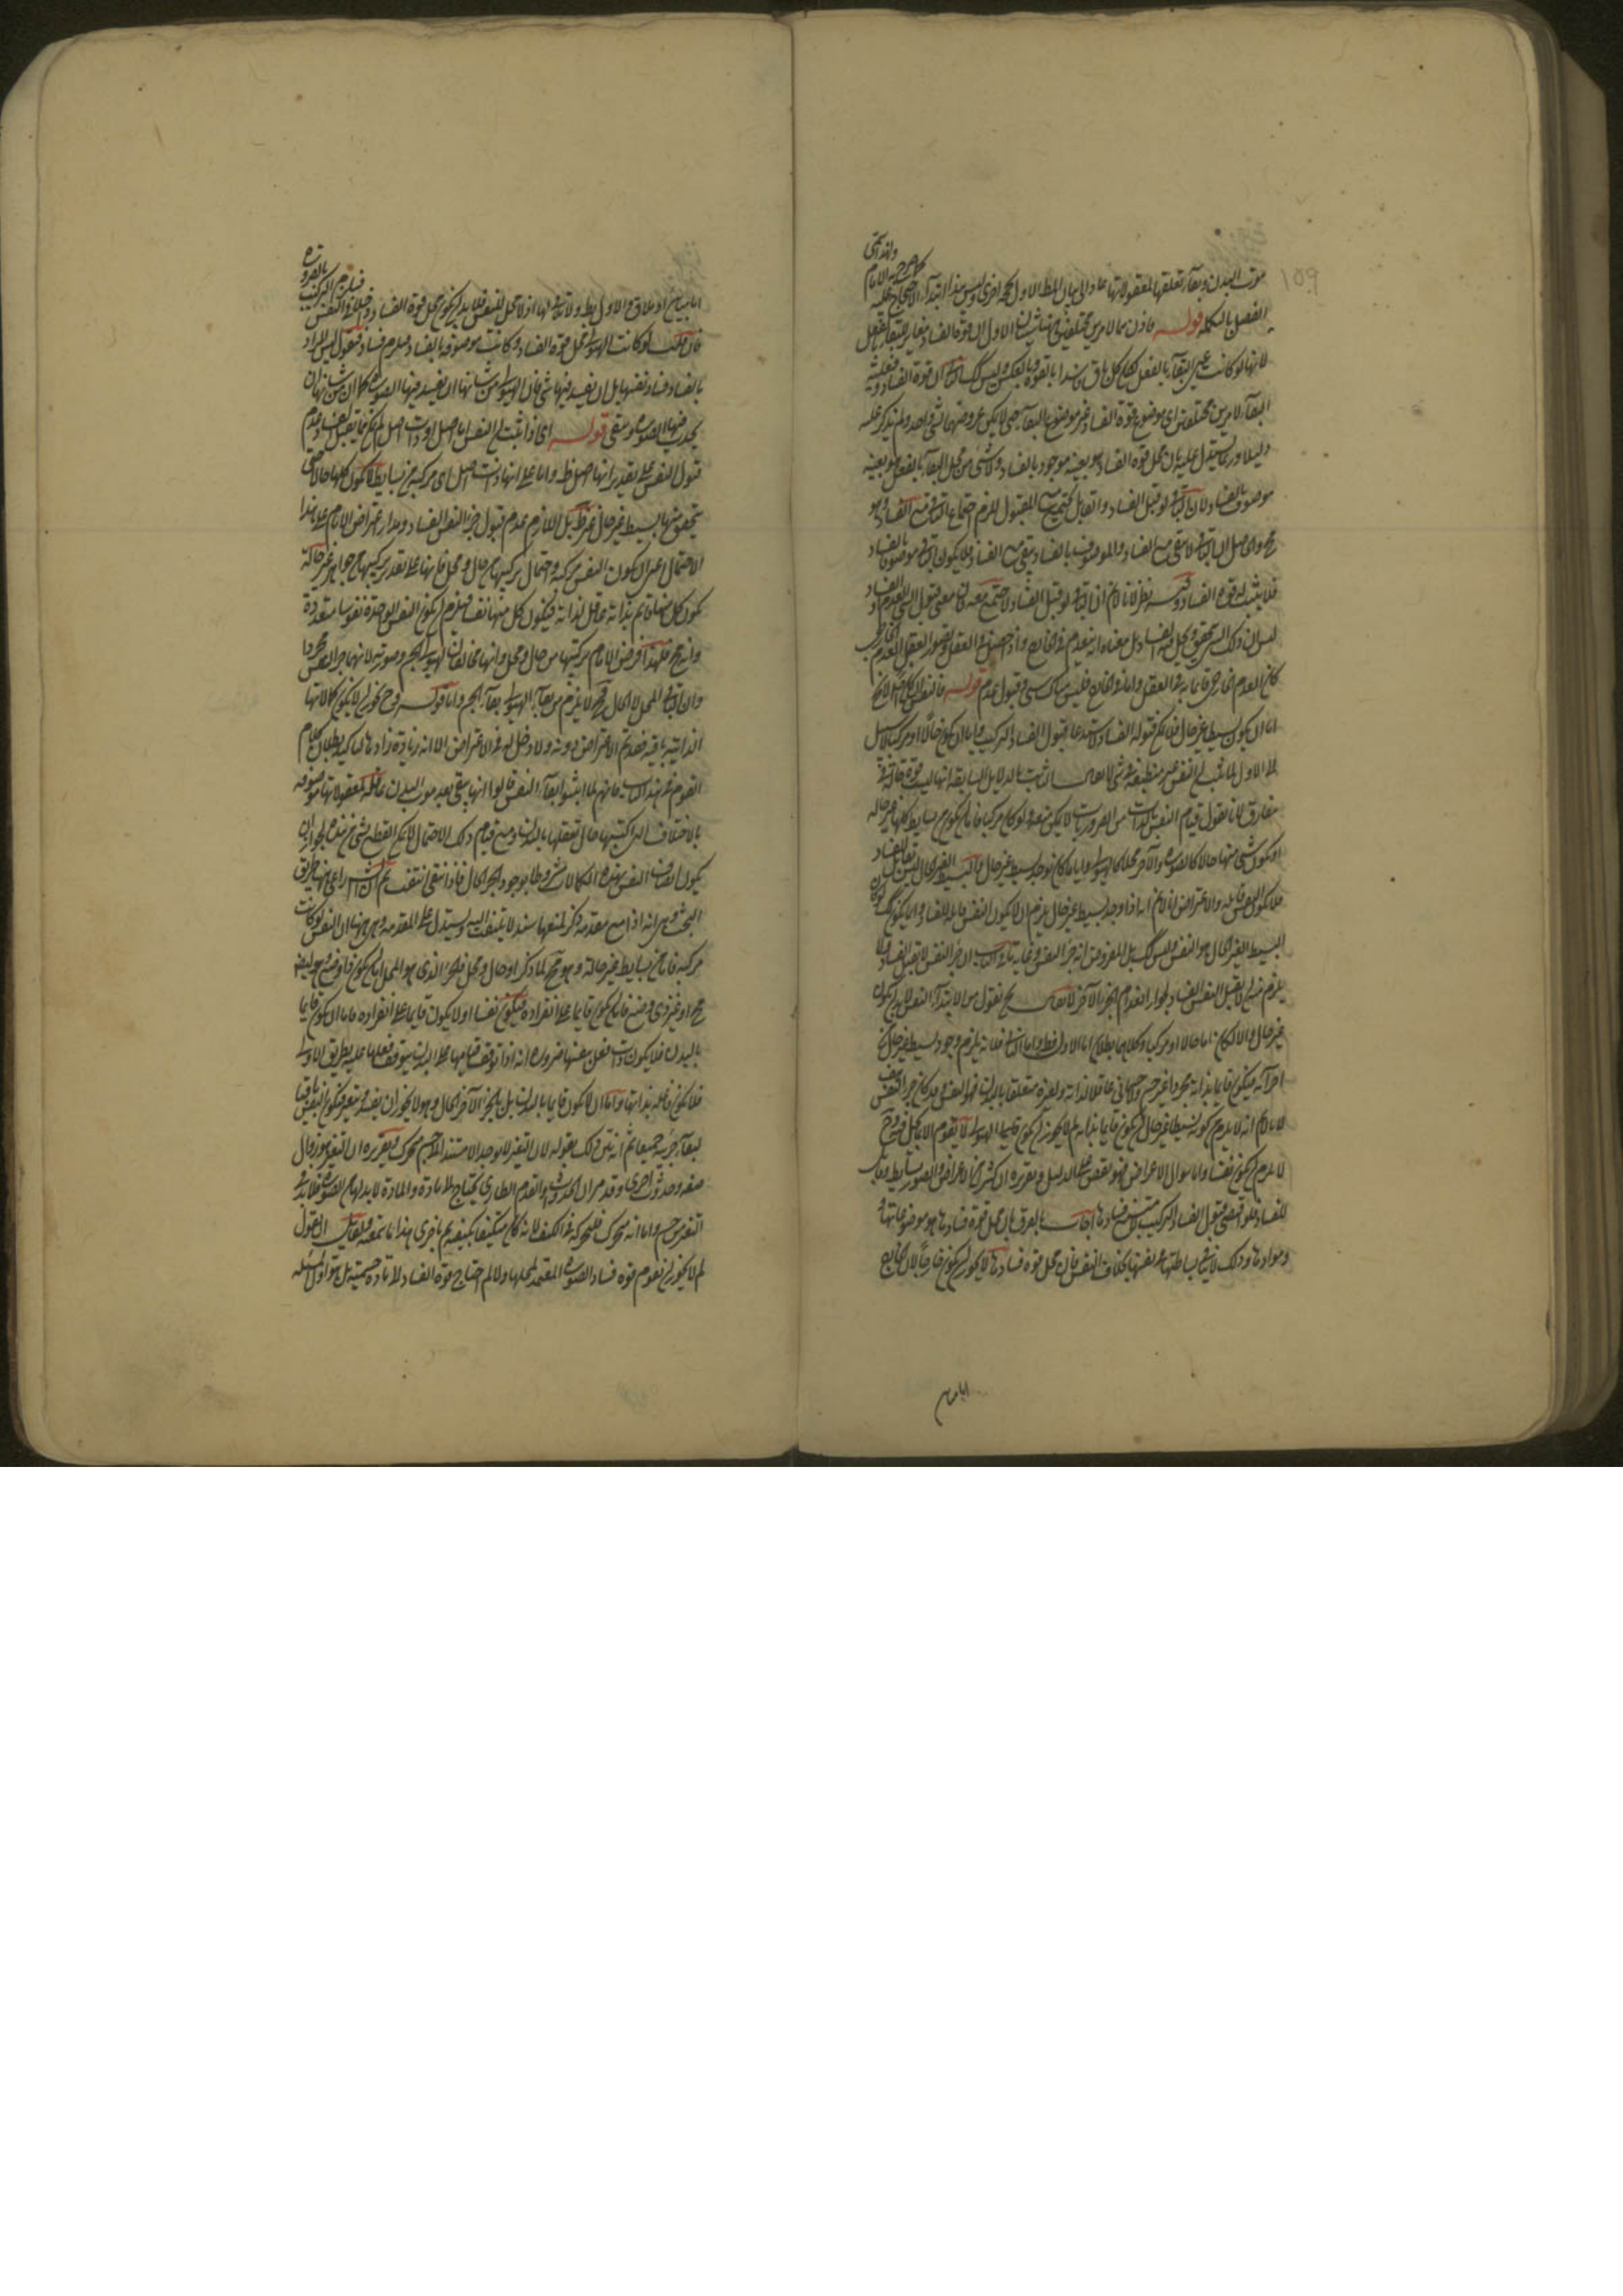 موت البدن وبقاء تعلقها لمعقولاتها عاد الى بيان المط الاول بحجة اخرى وليس هذا ابتداء الاحتجاج عليه
الفصل بالتكملة قوله فاذن هما لامرين مختلفين اثبات الاول ان قوة الفساد مغاير للبقاء بالفعل
لانها لو كانت عين البقاء بالفعل لكان كل باق فاسدا بالقوة وبالعكس وليس كك الثانى ان قوة الفساد وفعلية
البقاء لامرين مختلفين اى موضوع قوة الفساد غير موضوع البقاء حتى لا يمكن عروضهما لشئ واحد ولم يذكر عليه
دليلا وربما يستدل عليه بان محل قوة الفساد هو بعينه موجود بالفساد ولا شئ من محل البقاء بالفعل هو بعينه
موصوف بالفساد لان الباقى لو قبل الفساد والقابل يجتمع مع المقبول لزم اجتماع الباقى مع الفساد وهو
مح والحاصل ان الباقى لا يبقى مع الفساد والموصوف بالفساد يبقى مع الفساد فلا يكون الباقى موصوفا بالفساد
فلا يثبت له قوة الفساد وفيه نظر لانا لا نم ان الباقى لو قبل الفساد لاجتمع معه فان معنى قبول الشئ العدم او الفساد
ليس ان ذلك الشئ يتحقق ويحل فيه الفساد بل معناه انه ينعدم فى الخارج واذا حصل فى العقل وتصور العقل العدم الخارجى
كان العدم الخارجى قائما به فى العقل واما فى الخارج فليس هناك شئ وقبول عدم قوله فالنفس
اما ان يكون بسيطا غير حال فلا يمكن قبوله الفساد لاستدعاء قبول الفساد التركيب واما ان يكون حالا او مركبا لا سبيل
الى الاول لما ثبت ان النفس غير منطبعة فى شئ لا يقال الثابت بالدلايل السابقة انها ليست قوة حالة فى
مفارق لانا نقول قيام النفس بالذات من الضروريات لا يمكن منعه ولو كان مركبا فاما ان يكون بسايط كلها غير حالة
او يكون شئ منها حالا كالصورة والآخر محلا كالهيولى واياما كان يوجد بسيط غير حال والبسيط الغير الحال ليس بقابل للفساد
فلا يكون النفس قابلة والاعتراض انا لا نم انه اذا وجد بسيط غير حال يلزم ان لا يكون النفس قابلة للفساد وانما يكون كك لو كان
البسيط الغير الحال هو النفس وليس كك بل المفروض انه جزء النفس وغاية ما فى الباب ان جزء النفس لا يقبل الفساد ولا
يلزم منه ان لا يقبل النفس الفساد لجواز انعدام الجزء الآخر لا يقال نحن نقول من الابتداء النفس لا بد ان يكون
غير حال والا لكان اما حالا او مركبا وكلاهما باطلان اما الاول فظ واما الثانى فلانه يلزم وجود بسيط غير حال
اجزائه فيكون قائما بذاته مجردا غير جسم وجسمانى عاقلا لذاته ولغيره متعلقا بالبدن فهو النفس وقد كان جزء النفس هف
لانا لا نم انه لا يلزم من كونه بسيطا غير حال ان يكون قائما بذاته لم لا يجوز ان يكون قائما الهيولى لا تقوم الا بالحال فيه وح
لا يلزم ان يكون نفسا واما سؤال الاعراض فهو نقض على الدليل وتقريره ان كثيرا من الاعراض والصور بسايط وقابلة
للفساد فلو اقتضى قبول الفساد التركيب لامتنع فسادها اجاب بالفرق بان محل قوة فسادها هو موضوعاتها
وموادها وذلك لا ينافى بساطتها فى نفسها بخلاف النفس فان محل قوة فسادها لا يجوز ان يكون خارجا لان الخارج
اما مباين
اما مباين او ملاق والاول بط والثانى لها اذ لا محل للنفس فلا بد ان يكون محل قوة الفساد داخلا فى النفس فيلزم التركيب بالضرورة
فان قلت لو كانت الهيولى محل قوة الفساد وكانت موصوفة بالفساد فيلزم فسادها فنقول ليس المراد
بالفساد فساد نفسها بل ان يفسد فيها شئ فان الهيولى من شانها ان يفسد فيها الصورة كما ان من شانها ان
يحدث فيها الصورة ويبقى قوله اى اذا ثبت ان النفس اما اصل او ذات اصل لم يكن مما يقبل الفساد وعدم
قبول النفس على تقدير انها اصل ظ واما على انها ذات اصل اى مركبة من بسايط لا يكون كلها حالا حتى
يتحقق منها بسيط غير حال غير ظ بل اللازم عدم قبول جزء النفس الفساد ومدار اعتراض الامام على هذا
الاحتمال اعنى ان يكون النفس مركبة واحتمال تركبها من حال ومحل فانها على تقدير تركبها من جواهر غير حالة
يكون كل منها قائم بذاته عاقل لذاته فيكون كل منها نفسا فيلزم ان يكون النفس الواحدة نفوسا متعددة
وانه مح فلهذا فرض الامام تركبها من حال ومحل وانهما مخالفان لهيولى الجسم وصورته لانهما جزء النفس المجردة
وان الباقى المحل لا الحال وح لا يلزم من بقاء الهيولى بقاء الجسم واما قوله وح يجوز ان لا يكون كمالاتها
الذاتية باقية فقد تم الاعتراض دونه ولا دخل له فى الاعتراض الا انه زيادة زادها لتاكيد بطلان كلام
القوم فى هذا الباب فانهم لما اثبتوا بقاء النفس قالوا انها يبقى بعد موت البدن عاقلة لمعقولاتها موصوفة
بالاخلاق التى اكتسبها حال تعلقها بالبدن ومع قيام ذلك الاحتمال لا يمكن القطع بشئ من هذه لجواز ان
يكون اتصاف النفس بهذه الكمالات مشروطا بوجود الجزء الحال فاذا انتفى انتفت ثم ان الشارح راعى هنا طريق
البحث وهى انه اذا منع مقدمة وذكر لمنعها سند لا يلتفت اليه ويستدل على المقدمة وهى ههنا ان النفس لو كانت
مركبة فاما من بسايط غير حالة وهو مح لما ذكر او حال ومحل فالجزء الذى هو المحل اما ان يكون ذا وضع وهو ايضا
مح او غير ذى وضع فاما ان يكون قائما على انفراده فيكون نفسا او لا يكون قائما على انفراده فاما ان يكون قائما
بالبدن فلا يكون ذات فعل بنفسها ضرورة انه اذا توقف قيامها على البدن يتوقف فعلها عليه بطريق الاولى
فلا يكون فاعلة بذاتها واما ان لا يكون قائما بالبدن بل بالجزء الآخر الحال وهو لا يجوز ان يفسد ويتغير فيكون النفس باقيا
لبقاء جزئيه جميعا ثم انه بين ذلك بقوله لان التغير لا يوجد الا مستندا الى جسم متحرك وتقريره ان التغير هو زوال
صفة وحدوث اخرى وقد مر ان الحدوث والعدم الطارى يحتاج الى مادة والمادة لا بد لها من الصورة فلا بد فى
التغير من جسم واما انه متحرك فلتحركه فى الكيف لانه كان متكيفا بكيفية ثم باخرى هذا ما نمنعه ولقائل ان يقول
لم لا يجوز ان يقوم قوة فساد الصورة المقيمة لمحلها ولا لم احتاج قوة الفساد الى مادة جسمية بل هو اول المسئلة